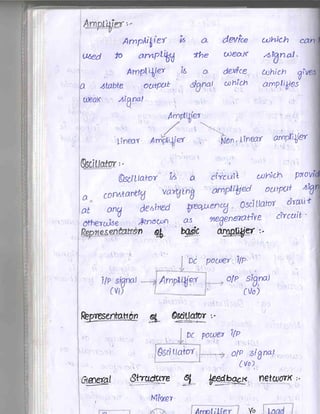 Amplifier :-
Amplifier is a device which can
used to amplify the weak signal.
Amplifier is a device which gives
a stable output signal which amplifies
weak signal
Amplifier
Linear Amplifier Non-linear amplifier
Oscillator :-
Oscillator is a circuit which provid
a constantly varying amplified output sign
at any desired frequency. Oscillator circuit
otherwise known as regenerative circuit.
Representation of basic amplifier :-
DC power I/P
I/P signal Amplifier O/P signal
(Vi) (Vo)
Representation of Oscillator :-
DC power I/P
Oscillator O/P signal
(Vo)
General Structure of feedback network :-
Mixer
Amplifier Vo Load